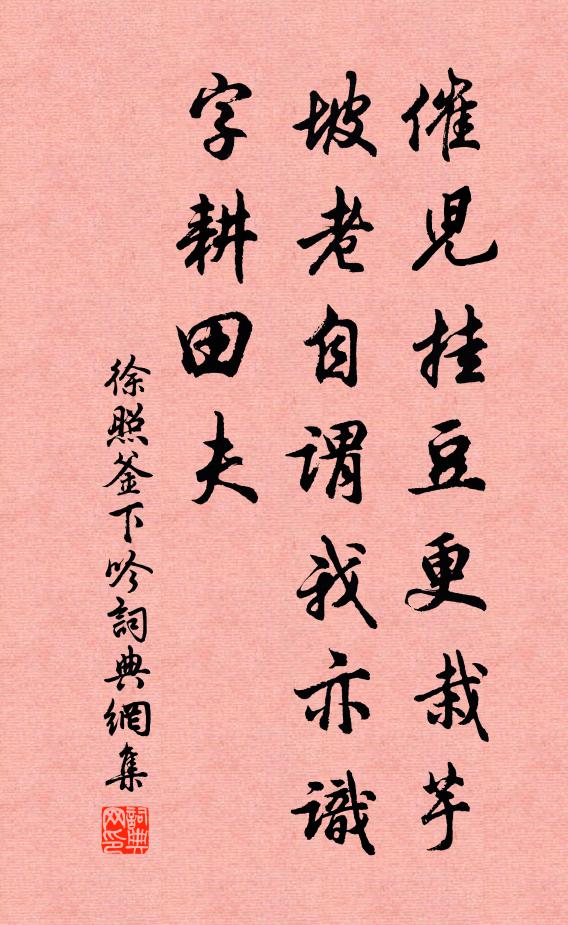 催児挂豆更栽芋
坡老自谓我亦識
字耕田夫
徐照釜下吟詞典網集
詞典网印